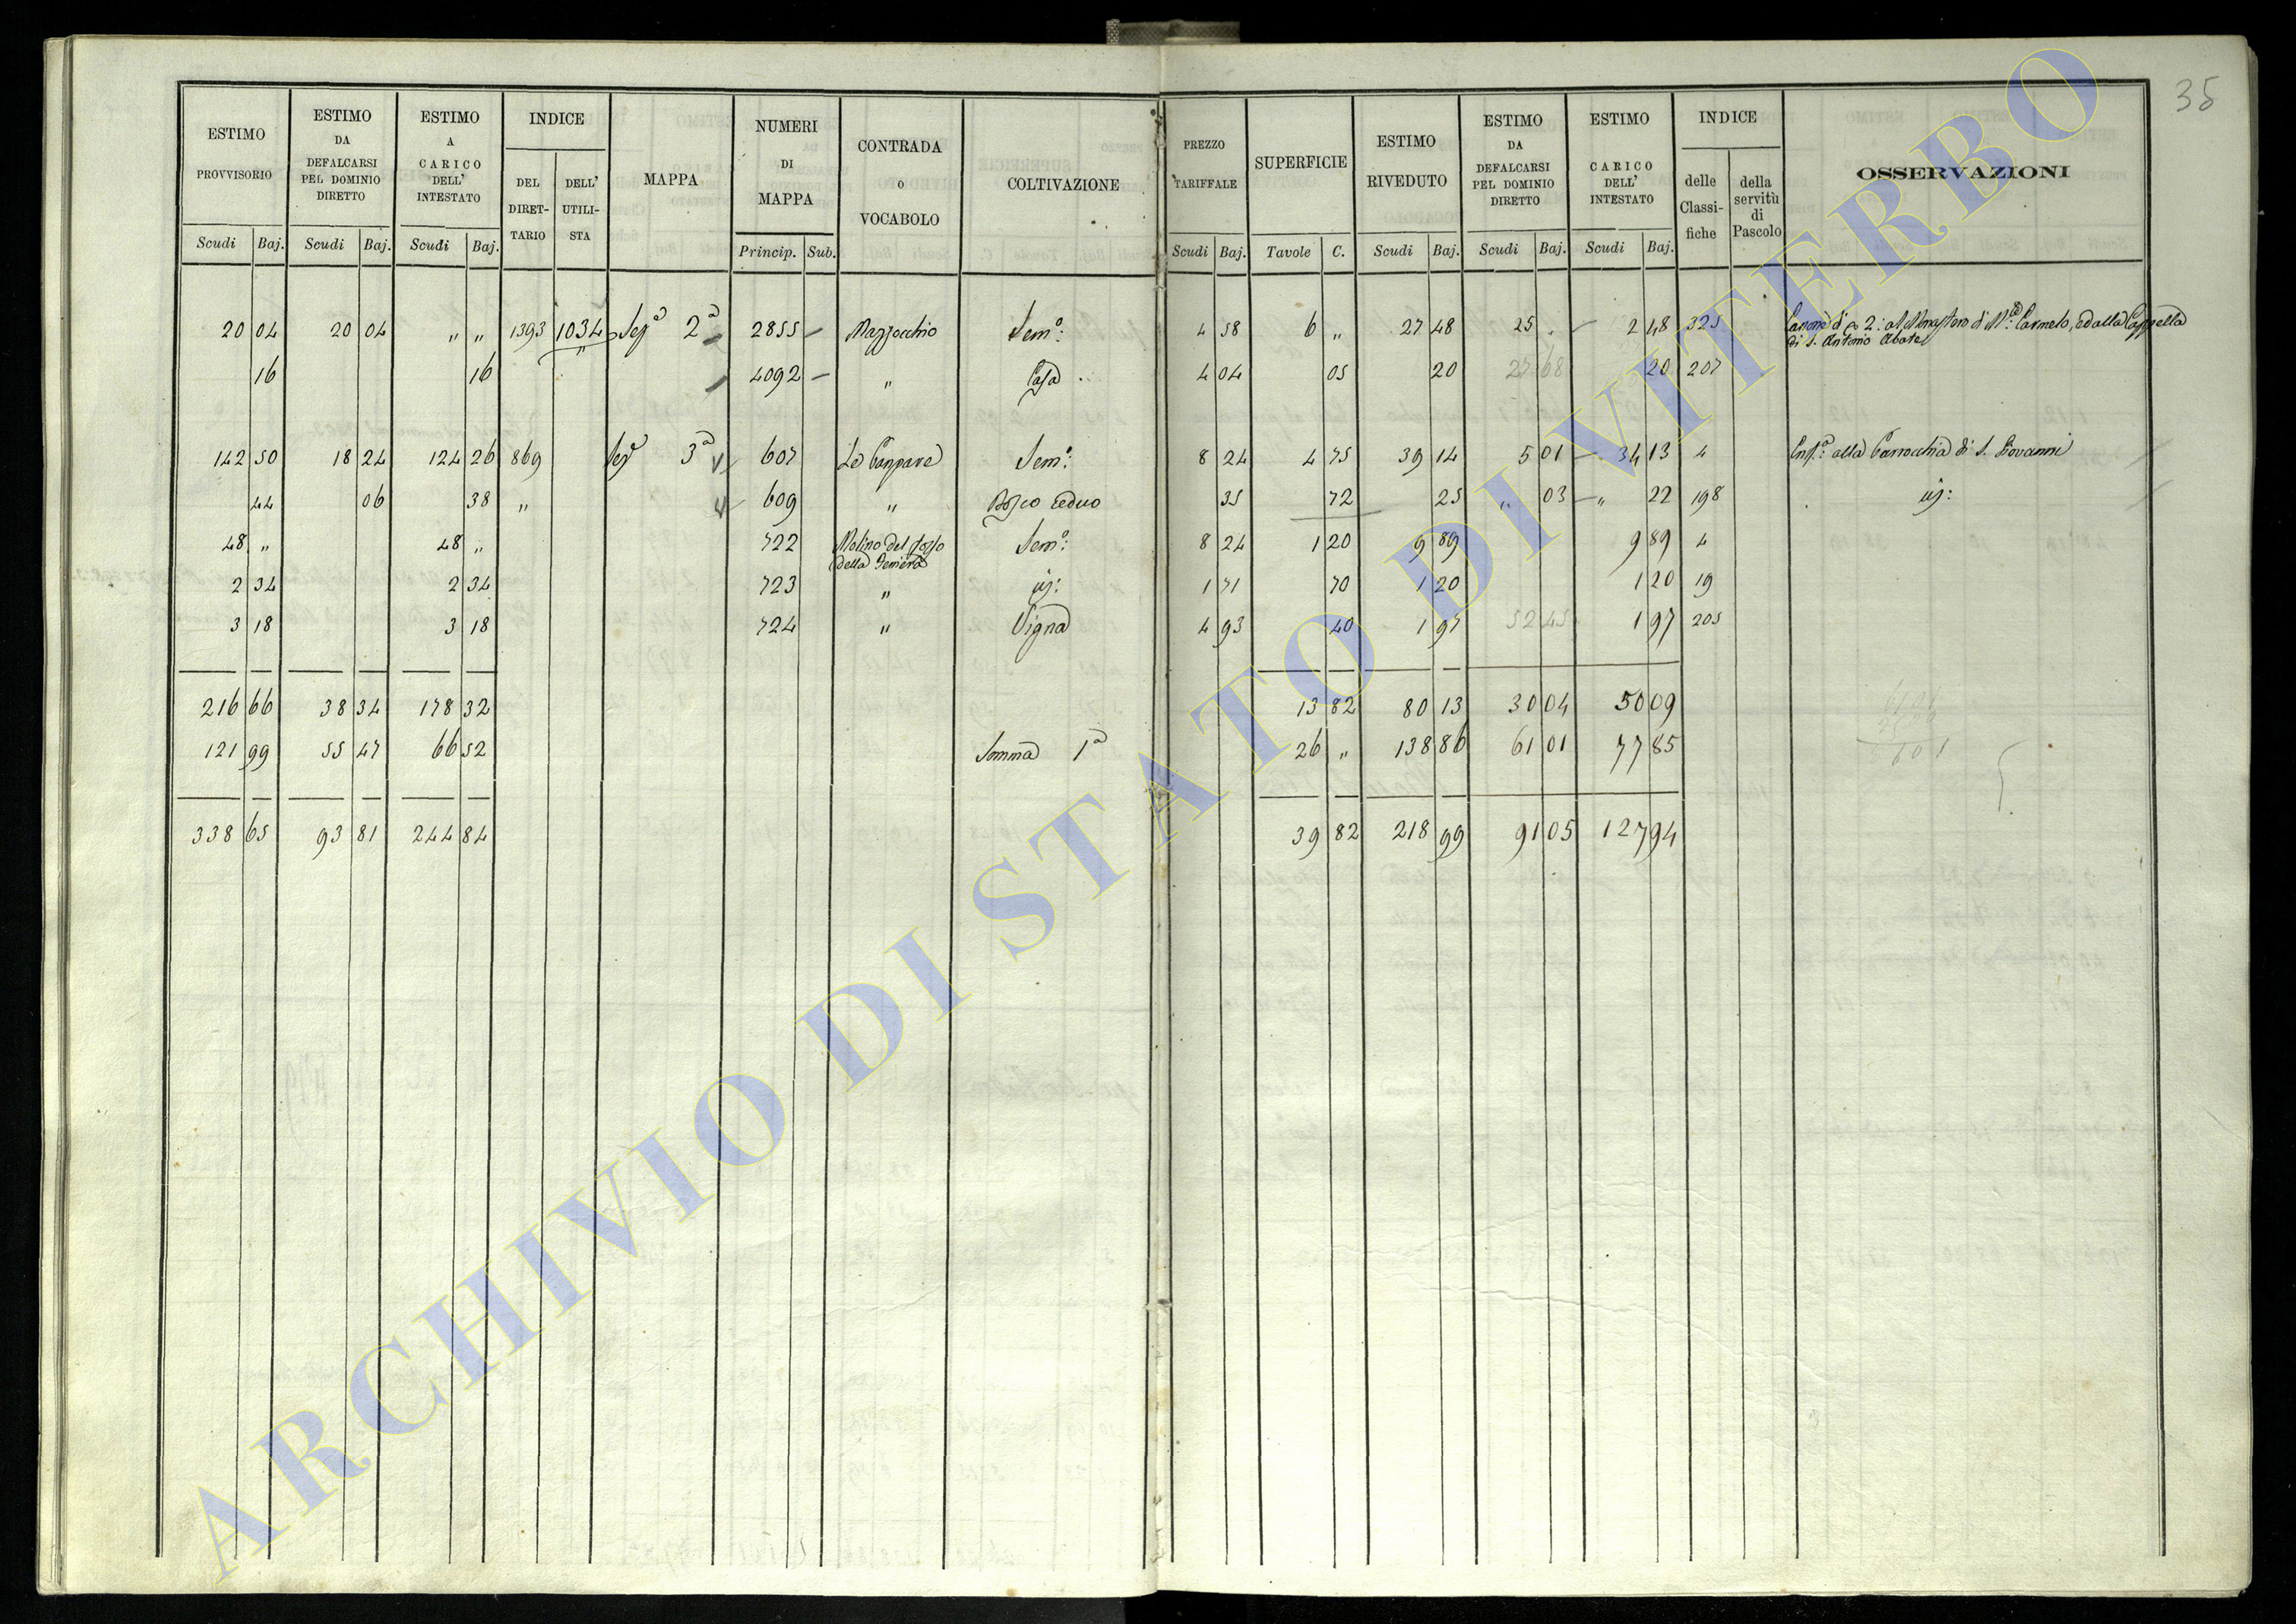 35
ESTIMO PROVVISORIO Scudi Baj.
ESTIMO DA DEFALCARSI PEL DOMINIO DIRETTO Scudi Baj.
ESTIMO A CARICO DELL' INTESTATO Scudi Baj.
INDICE DEL DIRET-TARIO DELL' UTILI-STA
MAPPA
NUMERI DI MAPPA Princip. Sub.
CONTRADA O VOCABOLO
COLTIVAZIONE
PREZZO TARIFFALE Scudi Baj.
SUPERFICIE Tavole C.
ESTIMO RIVEDUTO Scudi Baj.
ESTIMO DA DEFALCARSI PEL DOMINIO DIRETTO Scudi Baj.
ESTIMO CARICO DELL' INTESTATO Scudi Baj.
INDICE delle Classi-fiche della servitù di Pascolo
OSSERVAZIONI
20 04 20 04 " " 1393 1034 Sez.ª 2ª 2855 Mazzocchio Sem.º: 4 58 6 " 27 48 25 . 2 48 325 Canone di 2: al Monastero di M.ª Carmelo, ed alla Cappella
di S. Antonio Abate
16 16 4092 " Casa 4 04 05 20 27 68 20 207
142 50 18 24 124 26 869 Sez.ª 3ª 607 Le Campare Sem.º: 8 24 4 75 39 14 5 01 34 13 4 Enf.ª alla Parrocchia di S. Giovanni
44 06 38 " 609 " Bosco ceduo 35 72 25 " 03 " 22 198
48 " 48 " 722 Molino del fosso Sem.º: 8 24 1 20 9 89 9 89 4
della
2 34 2 34 723 " 1 71 70 1 20 1 20 19
3 18 3 18 724 " Vigna 4 93 40 1 97 52 45 1 97 205
216 66 38 34 178 32 13 82 80 13 30 04 50 09
121 99 55 47 66 52 Somma 1ª 26 " 138 86 61 01 77 85
338 65 93 81 244 84 39 82 218 99 91 05 127 94
ARCHIVIO DI STATO DI VITERBO